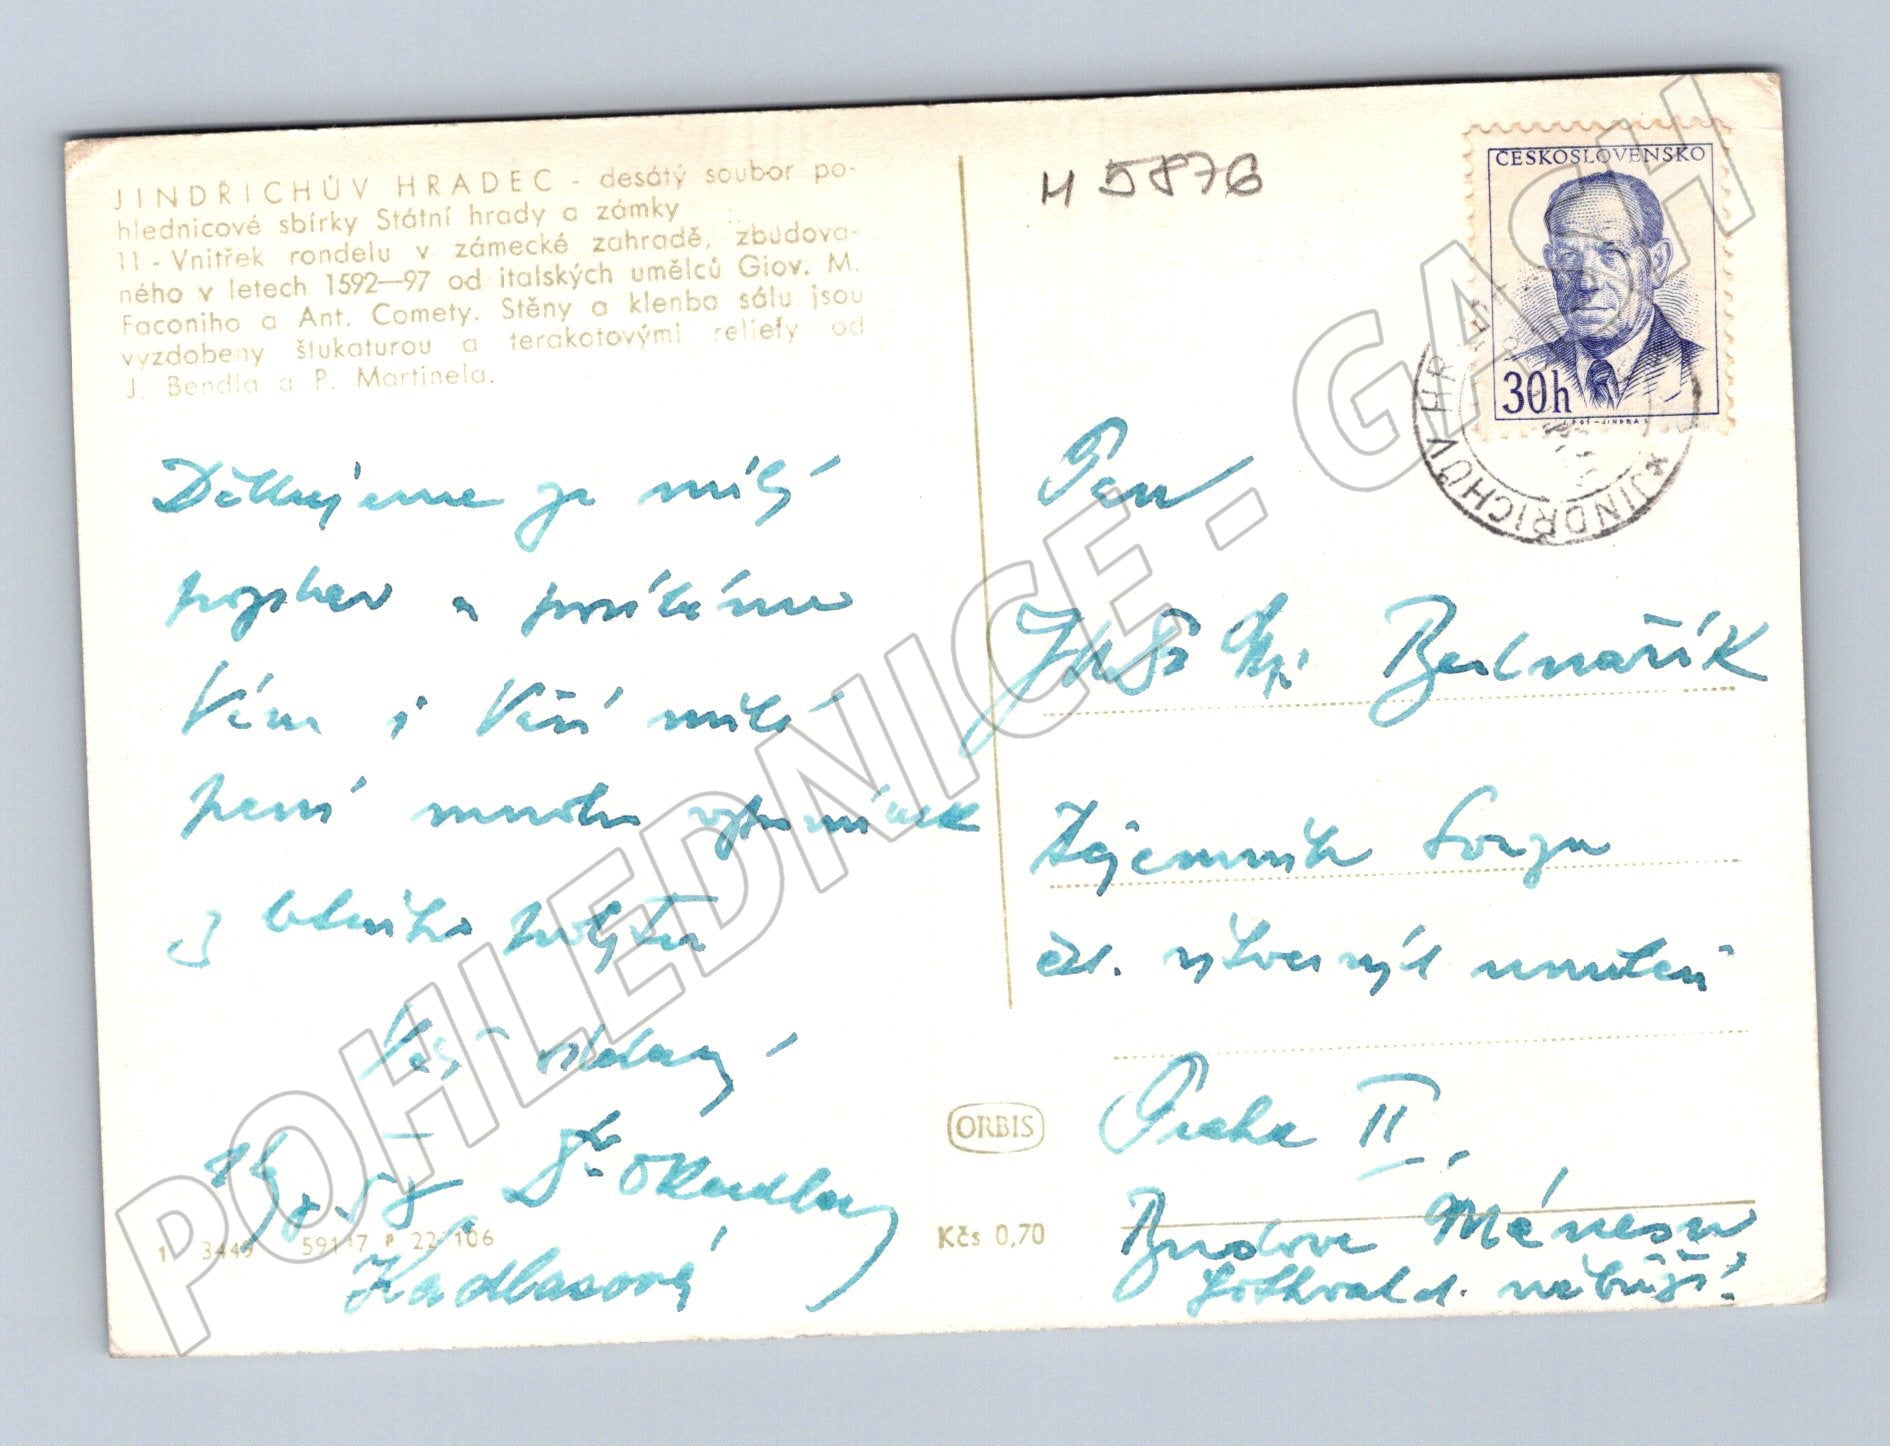 JINDŘICHŮV HRADEC - desátý soubor po-
hlednicové sbírky Státní hrady a zámky
11 - Vnitřek rondelu v zámecké zahradě, zbudova-
ného v letech 1592—97 od italských umělců Giov. M.
Faconiho a Ant. Comety. Stěny a klenba sálu jsou
vyzdobeny štukaturou a terakotovými reliefy od
J. Bendla a P. Martinela.
Děkujeme za milý
pozdrav a posíláme
Vám i Vaší milé
paní mnoho vzpomínek
z letního pobytu
Vaši oddaní
Kadlasová
1 3449 59117 P 22 106
ORBIS
Kčs 0,70
H 5876
ČESKOSLOVENSKO
30h
* JINDŘICHŮV HR
Pan
Bednařík
tajemník Svazu
čsl. výtvarných umělců
Praha II,
Budova Mánesu
Gottwald. nábřeží
POHLEDNICE - GASH